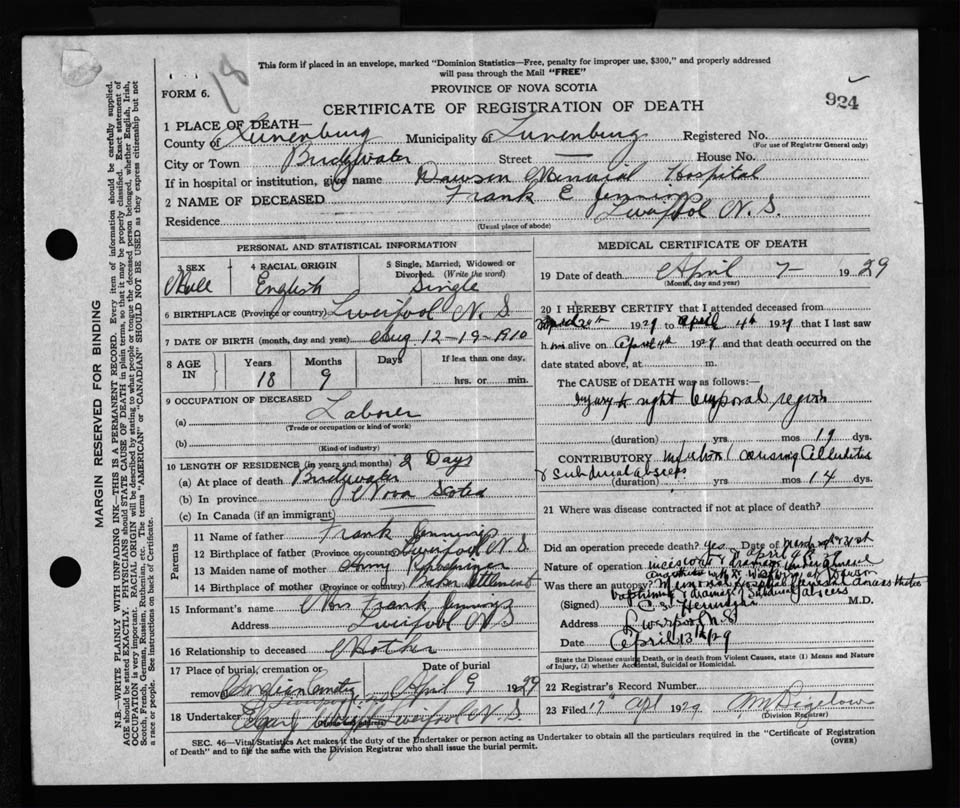 This form if placed in an envelope, marked "Dominion Statistics—Free, penalty for improper use, $300," and properly addressed
will pass through the Mail "FREE"
FORM 6.
18
PROVINCE OF NOVA SCOTIA
CERTIFICATE OF REGISTRATION OF DEATH
924
1 PLACE OF DEATH—
County of Lunenburg Municipality of Lunenburg Registered No.
(For use of Registrar General only)
City or Town Bridgewater Street — House No.
If in hospital or institution, give name Dawson Memorial Hospital
2 NAME OF DECEASED Frank E Jennings
Residence Liverpool N.S.
(Usual place of abode)
PERSONAL AND STATISTICAL INFORMATION
3 SEX 4 RACIAL ORIGIN 5 Single, Married, Widowed or
Divorced. (Write the word)
Male English Single
6 BIRTHPLACE (Province or country) Liverpool N.S.
7 DATE OF BIRTH (month, day and year) Aug 12-19-1910
8 AGE IN Years Months Days If less than one day,
18 9 hrs. or min.
9 OCCUPATION OF DECEASED
(a) Laborer
(Trade or occupation or kind of work)
(b)
(Kind of industry)
10 LENGTH OF RESIDENCE (in years and months) 2 Days
(a) At place of death Bridgewater
(b) In province Nova Scotia
(c) In Canada (if an immigrant)
Parents
11 Name of father Frank Jennings
12 Birthplace of father (Province or country) Liverpool N.S.
13 Maiden name of mother Amy
14 Birthplace of mother (Province or country) Baker Settlement
15 Informant's name Mrs Frank Jennings
Address Liverpool NS
16 Relationship to deceased Mother
17 Place of burial, cremation or removal Date of burial
April 9 1929
18 Undertaker Liverpool N.S.
MEDICAL CERTIFICATE OF DEATH
19 Date of death April 7- 1929
(Month, day and year)
20 I HEREBY CERTIFY that I attended deceased from
1929 to April 4th 1929 that I last saw
him alive on April 4th 1929 and that death occurred on the
date stated above, at m.
The CAUSE of DEATH was as follows:—
Injury to right temporal region
(duration) yrs. mos 19 dys.
CONTRIBUTORY causing Cellulitis
& Subdural abscess
(duration) yrs. mos 14 dys.
21 Where was disease contracted if not at place of death?
Did an operation precede death? yes Date of
Nature of operation
Was there an autopsy?
(Signed) M.D.
Address Liverpool N.S
Date April 13th/29
State the Disease causing Death, or in death from Violent Causes, state (1) Means and Nature
of Injury, (2) whether Accidental, Suicidal or Homicidal.
22 Registrar's Record Number
23 Filed 17 Apl 1929
(Division Registrar)
SEC. 46—Vital Statistics Act makes it the duty of the Undertaker or person acting as Undertaker to obtain all the particulars required in the "Certificate of Registration
of Death" and to file the same with the Division Registrar who shall issue the burial permit.
(OVER)
MARGIN RESERVED FOR BINDING
N.B.—WRITE PLAINLY WITH UNFADING INK—THIS IS A PERMANENT RECORD. Every item of information should be carefully supplied.
AGE should be stated EXACTLY. PHYSICIANS should STATE CAUSE OF DEATH in plain terms, so that it may be properly classified. Exact statement of
OCCUPATION is very important. RACIAL ORIGIN will be described by stating to what people or tongue the deceased person belonged, whether English, Irish,
Scotch, French, German, Russian, Ruthenian, etc. The terms "AMERICAN" or "CANADIAN" SHOULD NOT BE USED as they express citizenship but not
a race or people. See instructions on back of Certificate.